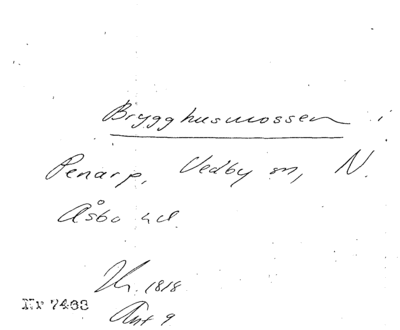 Brygghusmossen i
Penarp, Vedby sn, N.
Åsbo hd.
1818
Nr 7488
Ant 9